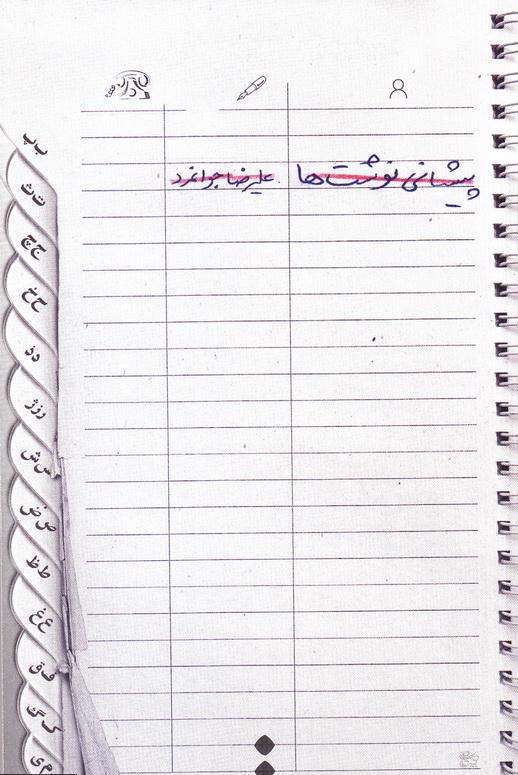 پیشانی نوشت‌ها علیرضا جوانمرد
ب پ
ت ث
ج چ
ح خ
د ذ
ر ز ژ
س ش
ص ض
ط ظ
ع غ
ف ق
ک گ
م ی